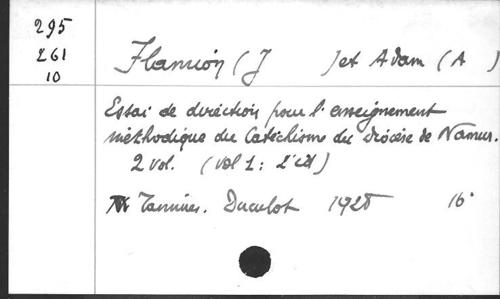 295
261
10
Flamion (J ) et Adam (A )
Essai de direction pour l'enseignement
méthodique du Catéchisme du diocèse de Namur.
2 vol. (vol 1: 2e éd)
Tamines. Duculot 1928 16°